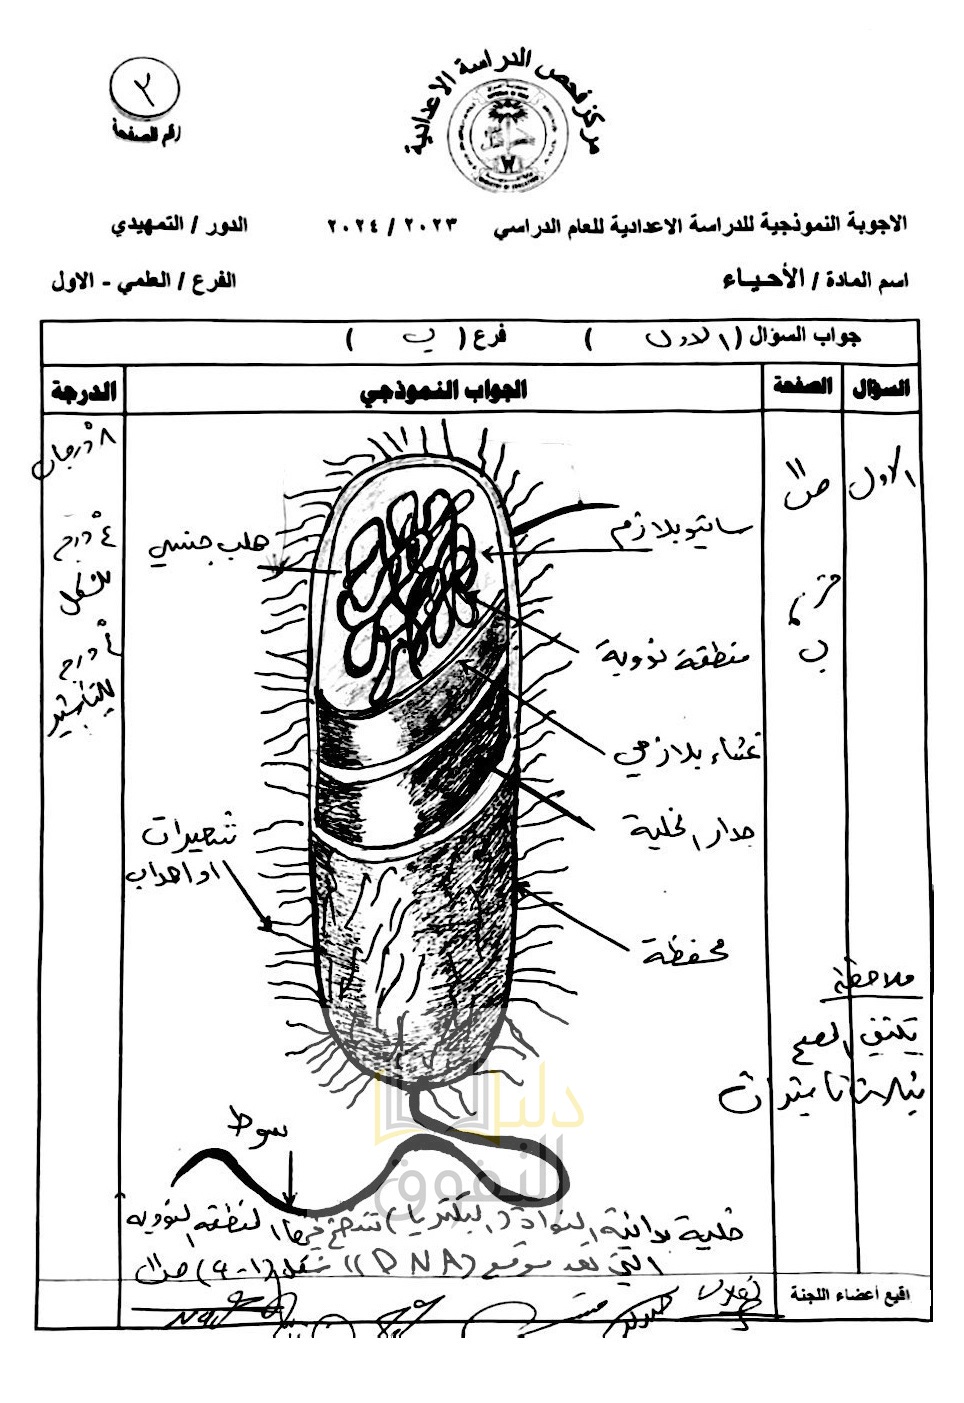 ٢
رقم الصفحة
مركز فحص الدراسة الاعدادية
الاجوبة النموذجية للدراسة الاعدادية للعام الدراسي ٢٠٢٣ / ٢٠٢٤ الدور / التمهيدي
اسم المادة / الأحياء الفرع / العلمي - الاول
جواب السؤال ( الاول ) فرع ( ب )
السؤال الصفحة الجواب النموذجي الدرجة
الاول
ص١١
فرع
ب
٨ درجات
٤ درجة
للشكل
٤ درجة
للتأشير
هلب جنسي
سايتوبلازم
منطقة نووية
غشاء بلازمي
جدار الخلية
شعيرات
او اهداب
محفظة
ملاحظة
يكتفي المصحح
بثلاث تأشيرات
سوط
دليل
التفوق
خلية بدائية النواة (البكتريا) تتضح فيها المنطقة النووية
التي تعد موقع (DNA) شكل (١-٩) ص١١
اقيع أعضاء اللجنة